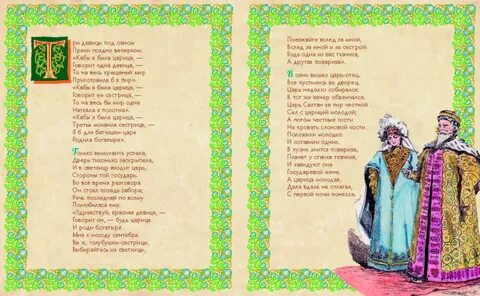 Три девицы под окном
Пряли поздно вечерком.
«Кабы я была царица, —
Говорит одна девица, —
То на весь крещеный мир
Приготовила б я пир».
«Кабы я была царица, —
Говорит ее сестрица, —
То на весь бы мир одна
Наткала я полотна».
«Кабы я была царица, —
Третья молвила сестрица, —
Я б для батюшки-царя
Родила богатыря».
Только вымолвить успела,
Дверь тихонько заскрыпела,
И в светлицу входит царь,
Стороны той государь.
Во все время разговора
Он стоял позадь забора;
Речь последней по всему
Полюбилася ему.
«Здравствуй, красная девица, —
Говорит он, — будь царица
И роди богатыря
Мне к исходу сентября.
Вы ж, голубушки-сестрицы,
Выбирайтесь из светлицы,
Поезжайте вслед за мной,
Вслед за мной и за сестрой:
Будь одна из вас ткачиха,
А другая повариха».
В сени вышел царь-отец.
Все пустились во дворец.
Царь недолго собирался:
В тот же вечер обвенчался.
Царь Салтан за пир честной
Сел с царицей молодой;
А потом честные гости
На кровать слоновой кости
Положили молодых
И оставили одних.
В кухне злится повариха,
Плачет у станка ткачиха,
И завидуют оне
Государевой жене.
А царица молодая,
Дела вдаль не отлагая,
С первой ночи понесла.